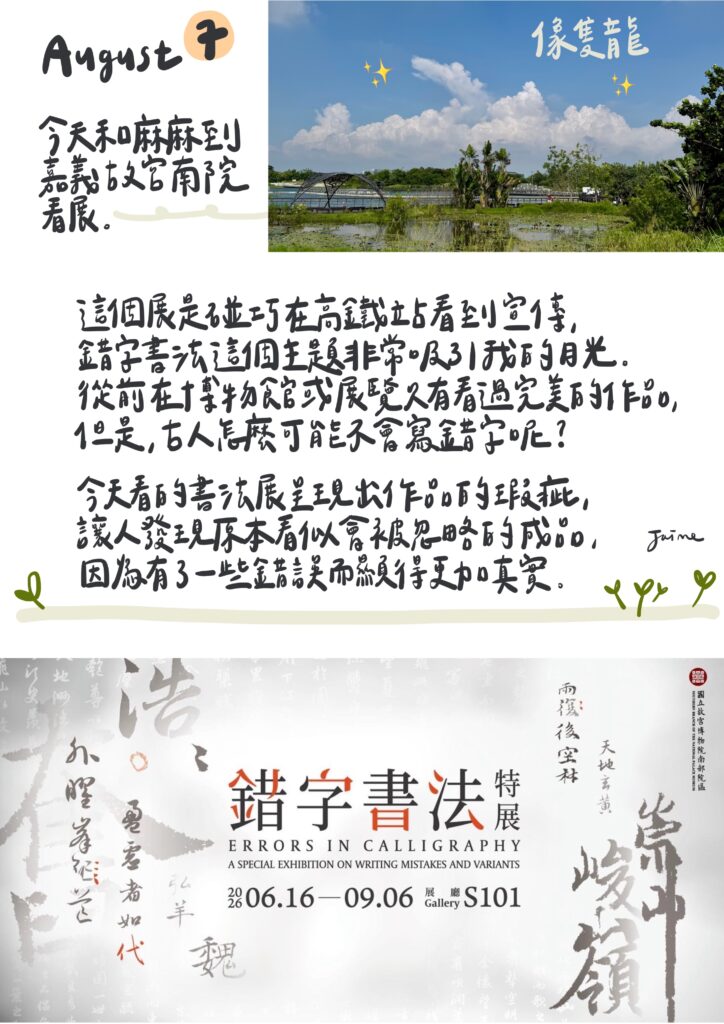 August 7
像隻龍
今天和麻麻到
嘉義故宮南院
看展。
這個展是碰巧在高鐵站看到宣傳,
錯字書法這個主題非常吸引我的目光.
從前在博物館或展覽只有看過完美的作品,
但是,古人怎麼可能不會寫錯字呢?
今天看的書法展呈現出作品的瑕疵,
讓人發現原本看似會被忽略的成品,
因為有了一些錯誤而顯得更加真實。
Jaime
國立故宮博物院南部院區
SOUTHERN BRANCH OF THE NATIONAL PALACE MUSEUM
浩
雨復後空林
天地玄黃
崇山
峻嶺
盈虛者如代
弘羊
魏
錯字書法 特展
ERRORS IN CALLIGRAPHY
A SPECIAL EXHIBITION ON WRITING MISTAKES AND VARIANTS
2026 06.16—09.06 展廳 Gallery S101